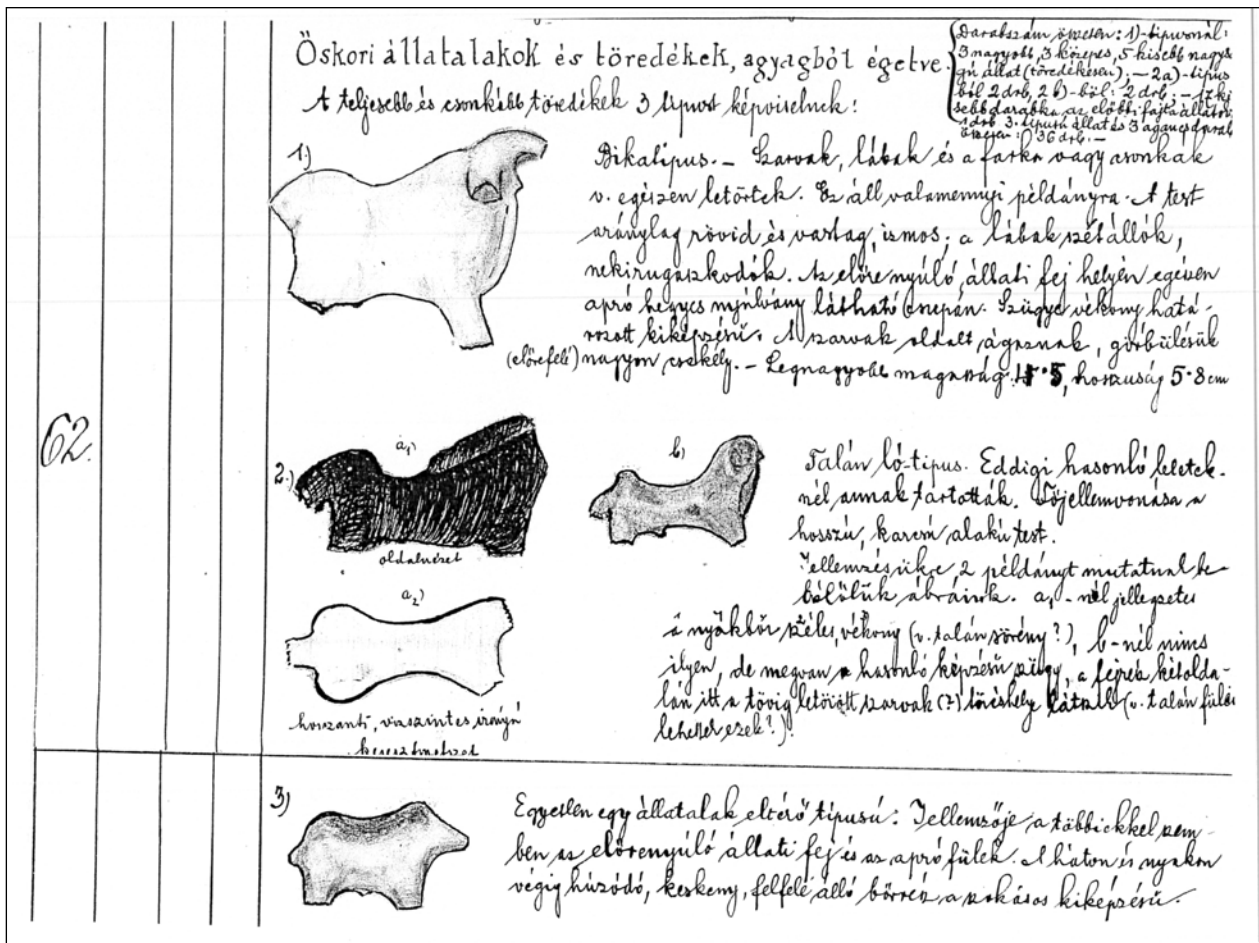 Őskori állatalakok és töredékek, agyagból égetve.
Darabszám összesen: 1)-tipusnál:
3 nagyobb, 3 közepes, 5 kisebb nagysá-
gú állat (töredékesen). — 2a)-tipus
ból 2 drb, 2 b)-ből: 2 drb: —
sebb darabka az előbbi fajta állatok
1 drb 3. tipusú állat és 3 agancsdarab
36 drb. —
A teljesebb és csonkább töredékek 3 tipust képviselnek:
1.)
Bikatipus. — Szarvak, lábak és a farka vagy csonkák
v. egészen letörtek. Ez áll valamennyi példányra. A test
aránylag rövid és vastag, izmos; a lábak szétállók,
nekirugaszkodók. Az előre nyúló, állati fej helyén egészen
apró hegyes nyúlvány látható csupán. Szügye vékony hatá-
rozott kiképzésű. A szarvak oldalt ágaznak, görbülésük
(előrefelé) nagyon csekély. — Legnagyobb magasság: 5, hosszuság 5·8 cm
62.
2.)
a₁)
oldalnézet
b)
Talán ló-tipus. Eddigi hasonló leletek-
nél annak tartották. Főjellemvonása a
hosszú, karcsú alakú test.
Jellemzésükre, 2 példányt mutatnak be
belőlük ábráink. a₁-nél jellegzetes
a nyakbőr széles, vékony (v. talán sörény?), b-nél nincs
ilyen, de megvan a hasonló képzésű szügy, a fejrész kétolda-
lán itt a tövig letörött szarvak (?) töréshelye látszik (v. talán fülei
lehettek ezek?).
a₂)
hosszanti, vizszintes irányú
keresztmetszet
3)
Egyetlen egy állatalak eltérő tipusú: Jellemzője a többiekkel szem-
ben az előrenyúló állati fej és az apró fülek. A háton és nyakon
végig húzódó, keskeny, felfelé álló bőrrész a szokásos kiképzésű.